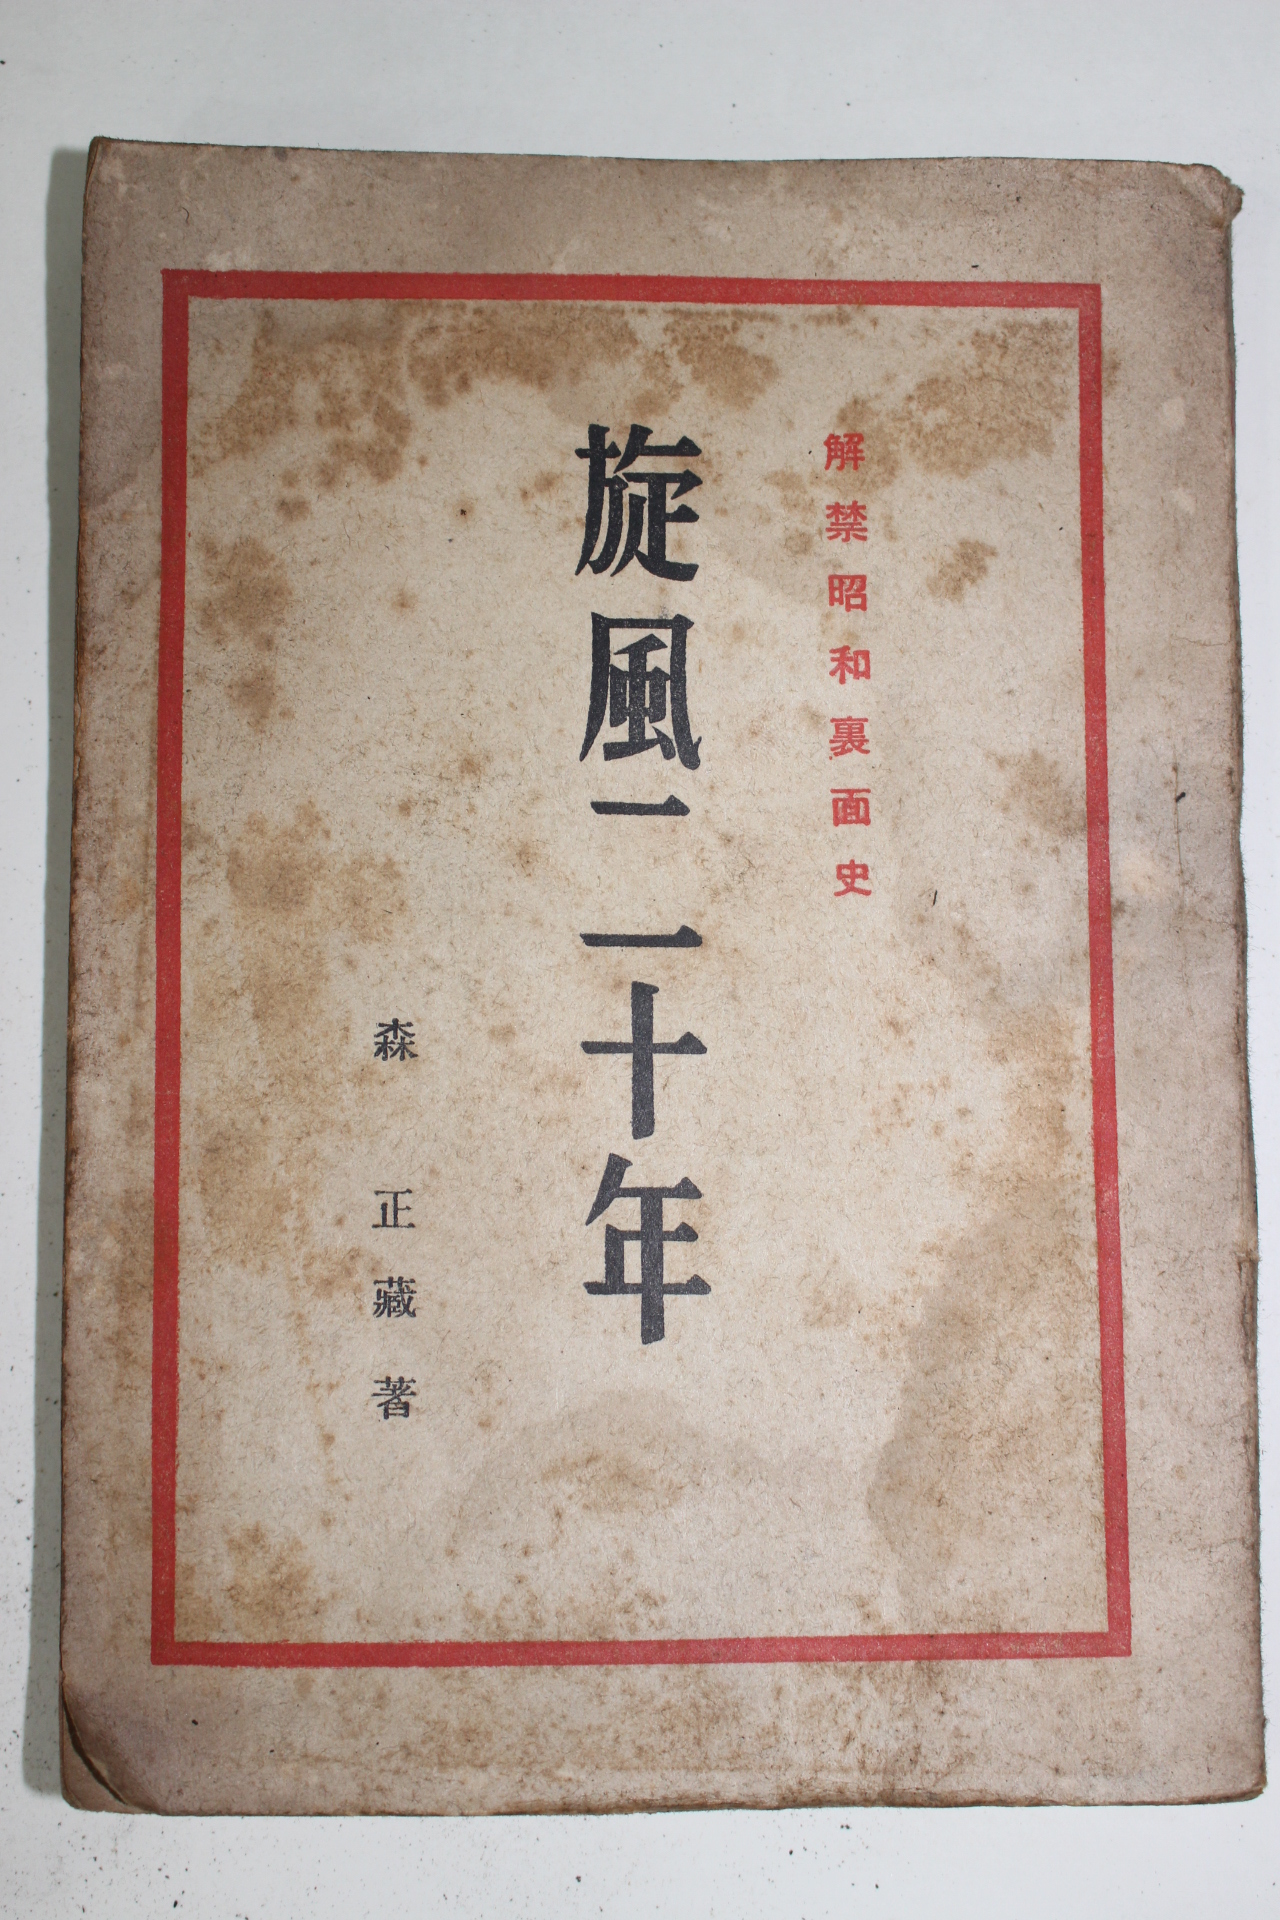 解禁昭和裏面史
旋風二十年
森正藏著